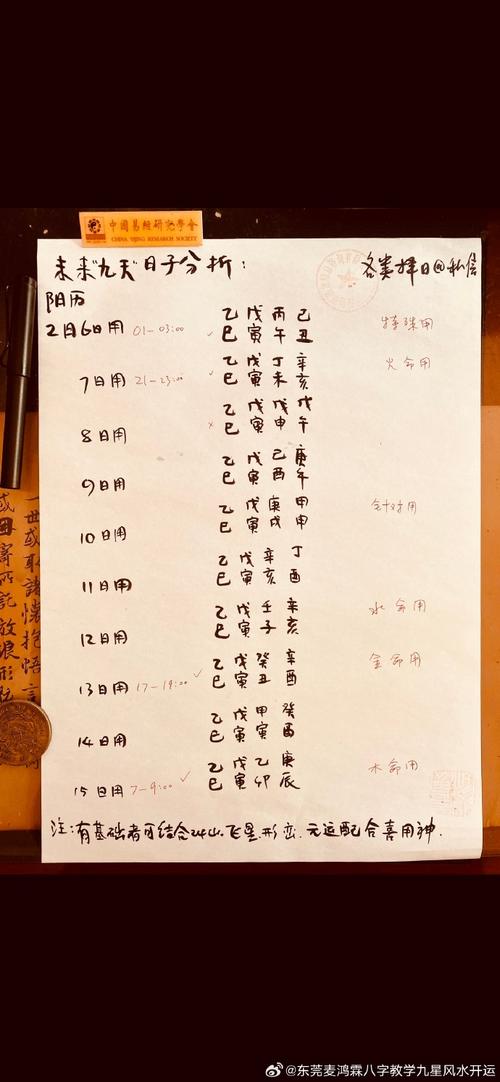 中国易经研究学会
CHINA YIJING RESEARCH SOCIETY
未来"九天"日子分析：
各类择日@私信
阳历
2月6日用 01-03:00 ✓ 乙巳 戊寅 丙午 己丑 特殊用
7日用 21-23:00 ✓ 乙巳 戊寅 丁未 辛亥 火命用
8日用 × 乙巳 戊寅 戊申 戊午
9日用 乙巳 戊寅 己酉 庚午
10日用 乙巳 戊寅 庚戌 甲申 针对用
11日用 乙巳 戊寅 辛亥 丁酉
12日用 乙巳 戊寅 壬子 辛亥 水命用
13日用 17-19:00 ✓ 乙巳 戊寅 癸丑 辛酉 金命用
14日用 乙巳 戊寅 甲寅 癸酉
15日用 7-9:00 ✓ 乙巳 戊寅 乙卯 庚辰 木命用
注：有基础者可结合24山.飞星.形峦.元运配合喜用神.
一世或取诸怀抱悟言
或因寄所托放浪形
@东莞麦鸿霖八字教学九星风水开运